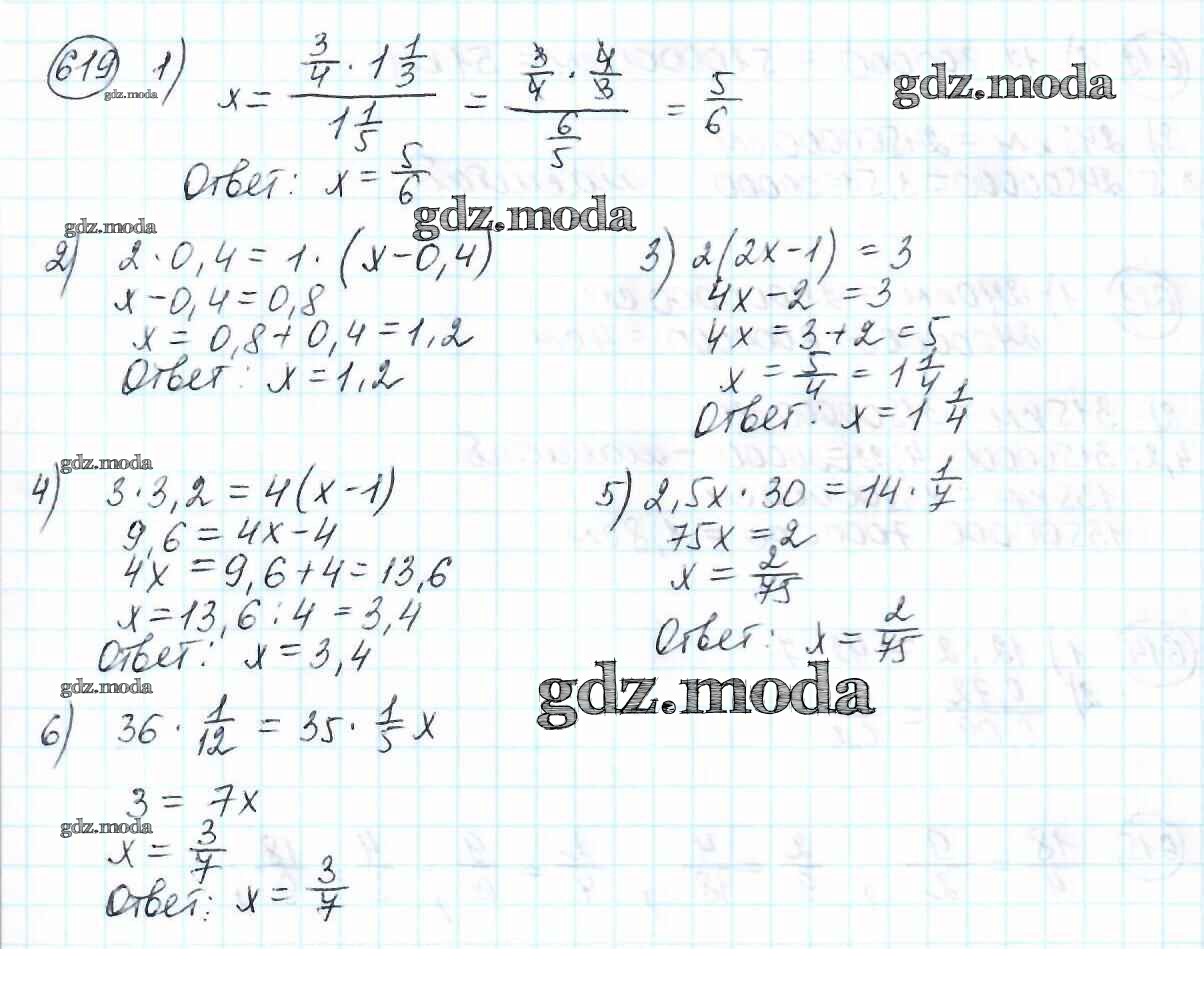 619 1) x = (3/4 · 1 1/3) / (1 1/5) = (3/4 · 4/3) / (6/5) = 5/6
gdz.moda
gdz.moda
Ответ: x = 5/6
gdz.moda
gdz.moda
2) 2 · 0,4 = 1 · (x – 0,4)
x – 0,4 = 0,8
x = 0,8 + 0,4 = 1,2
Ответ: x = 1,2
3) 2(2x – 1) = 3
4x – 2 = 3
4x = 3 + 2 = 5
x = 5/4 = 1 1/4
Ответ: x = 1 1/4
gdz.moda
4) 3 · 3,2 = 4(x – 1)
9,6 = 4x – 4
4x = 9,6 + 4 = 13,6
x = 13,6 : 4 = 3,4
Ответ: x = 3,4
5) 2,5x · 30 = 14 · 1/7
75x = 2
x = 2/75
Ответ: x = 2/75
gdz.moda
gdz.moda
6) 36 · 1/12 = 35 · 1/5 x
3 = 7x
gdz.moda
x = 3/7
Ответ: x = 3/7